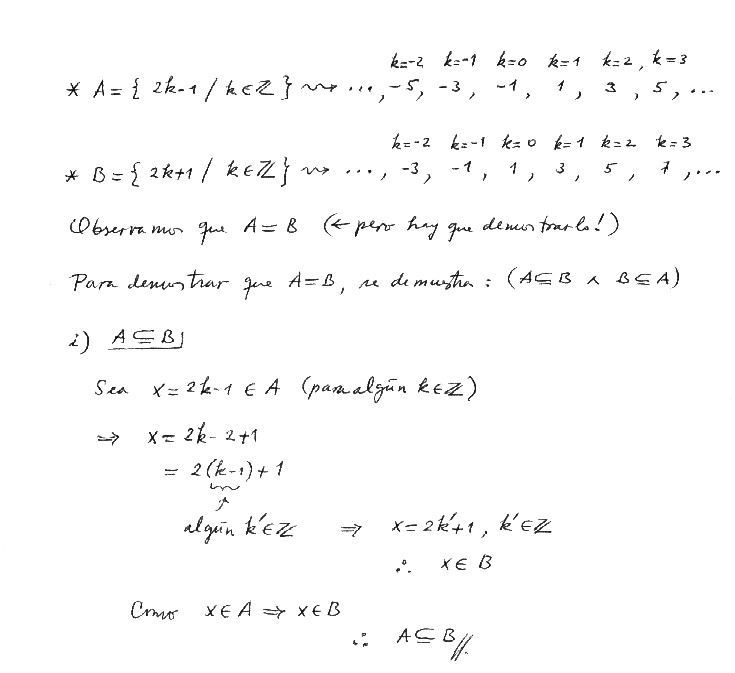 k=-2 k=-1 k=0 k=1 k=2, k=3
* A = { 2k-1 / k∈ℤ } ⇝ ..., -5, -3, -1, 1, 3, 5, ...
k=-2 k=-1 k=0 k=1 k=2 k=3
* B = { 2k+1 / k∈ℤ } ⇝ ..., -3, -1, 1, 3, 5, 7, ...
Observamos que A = B (← pero hay que demostrarlo!)
Para demostrar que A=B, se demuestra : (A⊆B ∧ B⊆A)
i) A⊆B
Sea x = 2k-1 ∈ A (para algún k∈ℤ)
⇒ x = 2k-2+1
= 2(k-1)+1
↑
algún k'∈ℤ ⇒ x=2k'+1, k'∈ℤ
∴ x∈B
Como x∈A ⇒ x∈B
∴ A⊆B //.